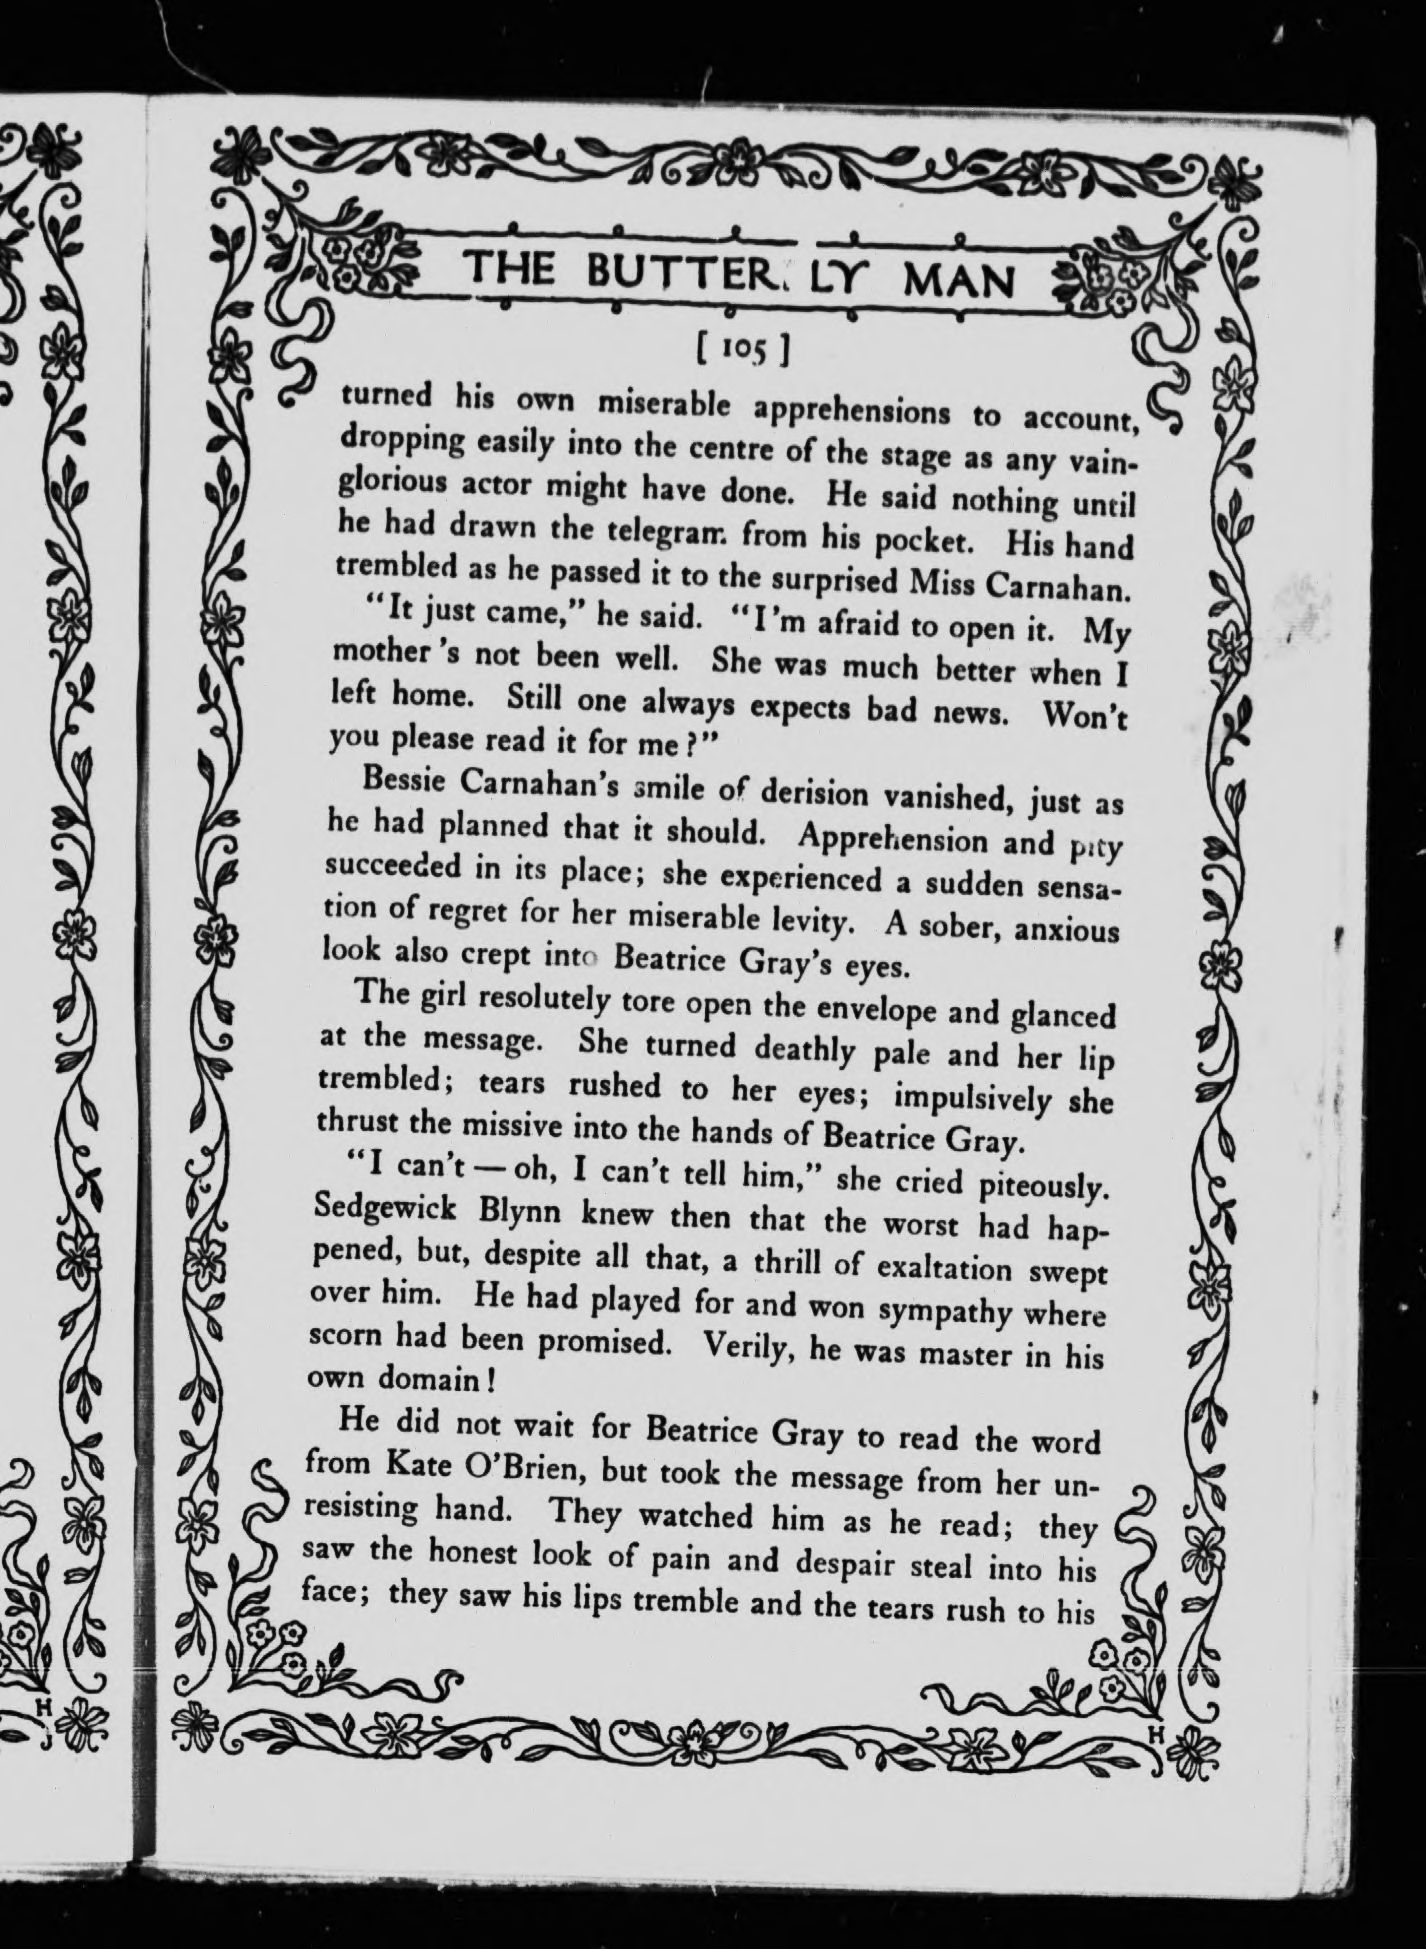 THE BUTTER LY MAN
[ 105 ]
turned his own miserable apprehensions to account,
dropping easily into the centre of the stage as any vain-
glorious actor might have done. He said nothing until
he had drawn the telegram from his pocket. His hand
trembled as he passed it to the surprised Miss Carnahan.
"It just came," he said. "I'm afraid to open it. My
mother's not been well. She was much better when I
left home. Still one always expects bad news. Won't
you please read it for me?"
Bessie Carnahan's smile of derision vanished, just as
he had planned that it should. Apprehension and pity
succeeded in its place; she experienced a sudden sensa-
tion of regret for her miserable levity. A sober, anxious
look also crept into Beatrice Gray's eyes.
The girl resolutely tore open the envelope and glanced
at the message. She turned deathly pale and her lip
trembled; tears rushed to her eyes; impulsively she
thrust the missive into the hands of Beatrice Gray.
"I can't — oh, I can't tell him," she cried piteously.
Sedgewick Blynn knew then that the worst had hap-
pened, but, despite all that, a thrill of exaltation swept
over him. He had played for and won sympathy where
scorn had been promised. Verily, he was master in his
own domain!
He did not wait for Beatrice Gray to read the word
from Kate O'Brien, but took the message from her un-
resisting hand. They watched him as he read; they
saw the honest look of pain and despair steal into his
face; they saw his lips tremble and the tears rush to his
H
H